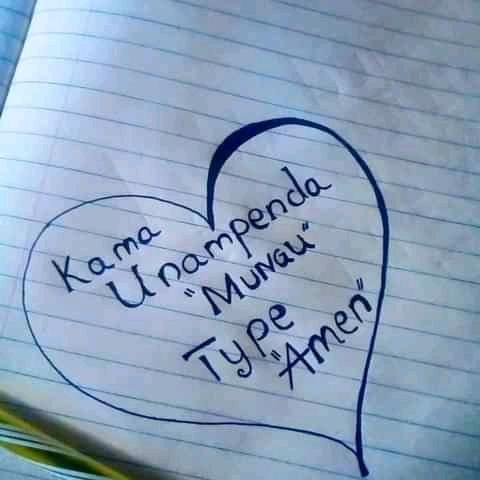 Kama
Unampenda
"Munau"
Type
"Amen"